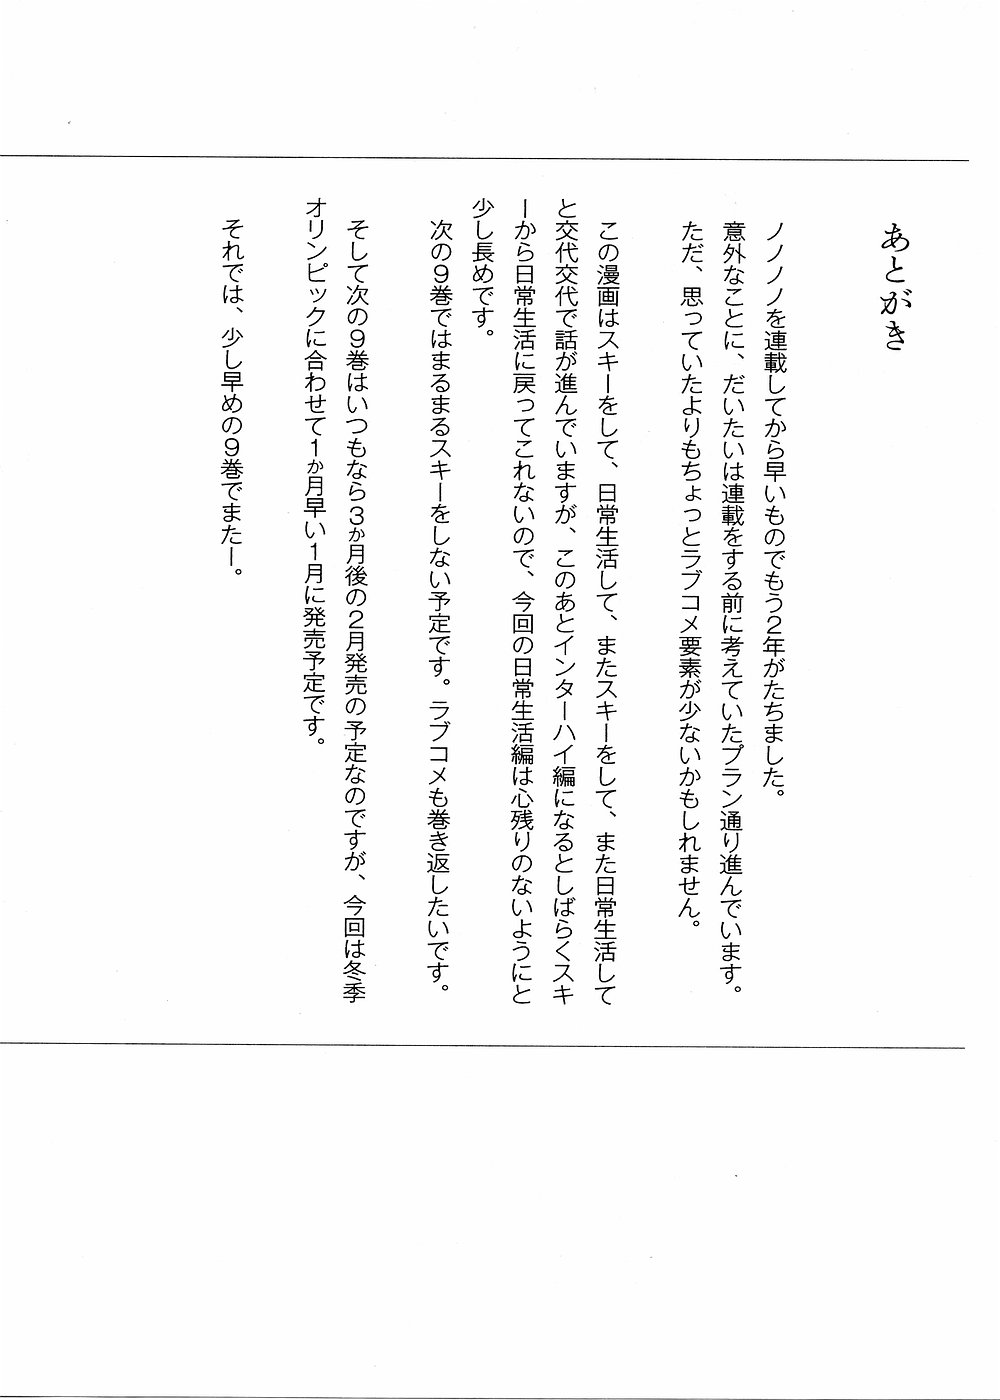 あとがき
ノノノノを連載してから早いものでもう2年がたちました。
意外なことに、だいたいは連載をする前に考えていたプラン通り進んでいます。
ただ、思っていたよりもちょっとラブコメ要素が少ないかもしれません。
この漫画はスキーをして、日常生活して、またスキーをして、また日常生活して
と交代交代で話が進んでいますが、このあとインターハイ編になるとしばらくスキ
ーから日常生活に戻ってこれないので、今回の日常生活編は心残りのないようにと
少し長めです。
次の9巻ではまるまるスキーをしない予定です。ラブコメも巻き返したいです。
そして次の9巻はいつもなら3か月後の2月発売の予定なのですが、今回は冬季
オリンピックに合わせて1か月早い1月に発売予定です。
それでは、少し早めの9巻でまたー。